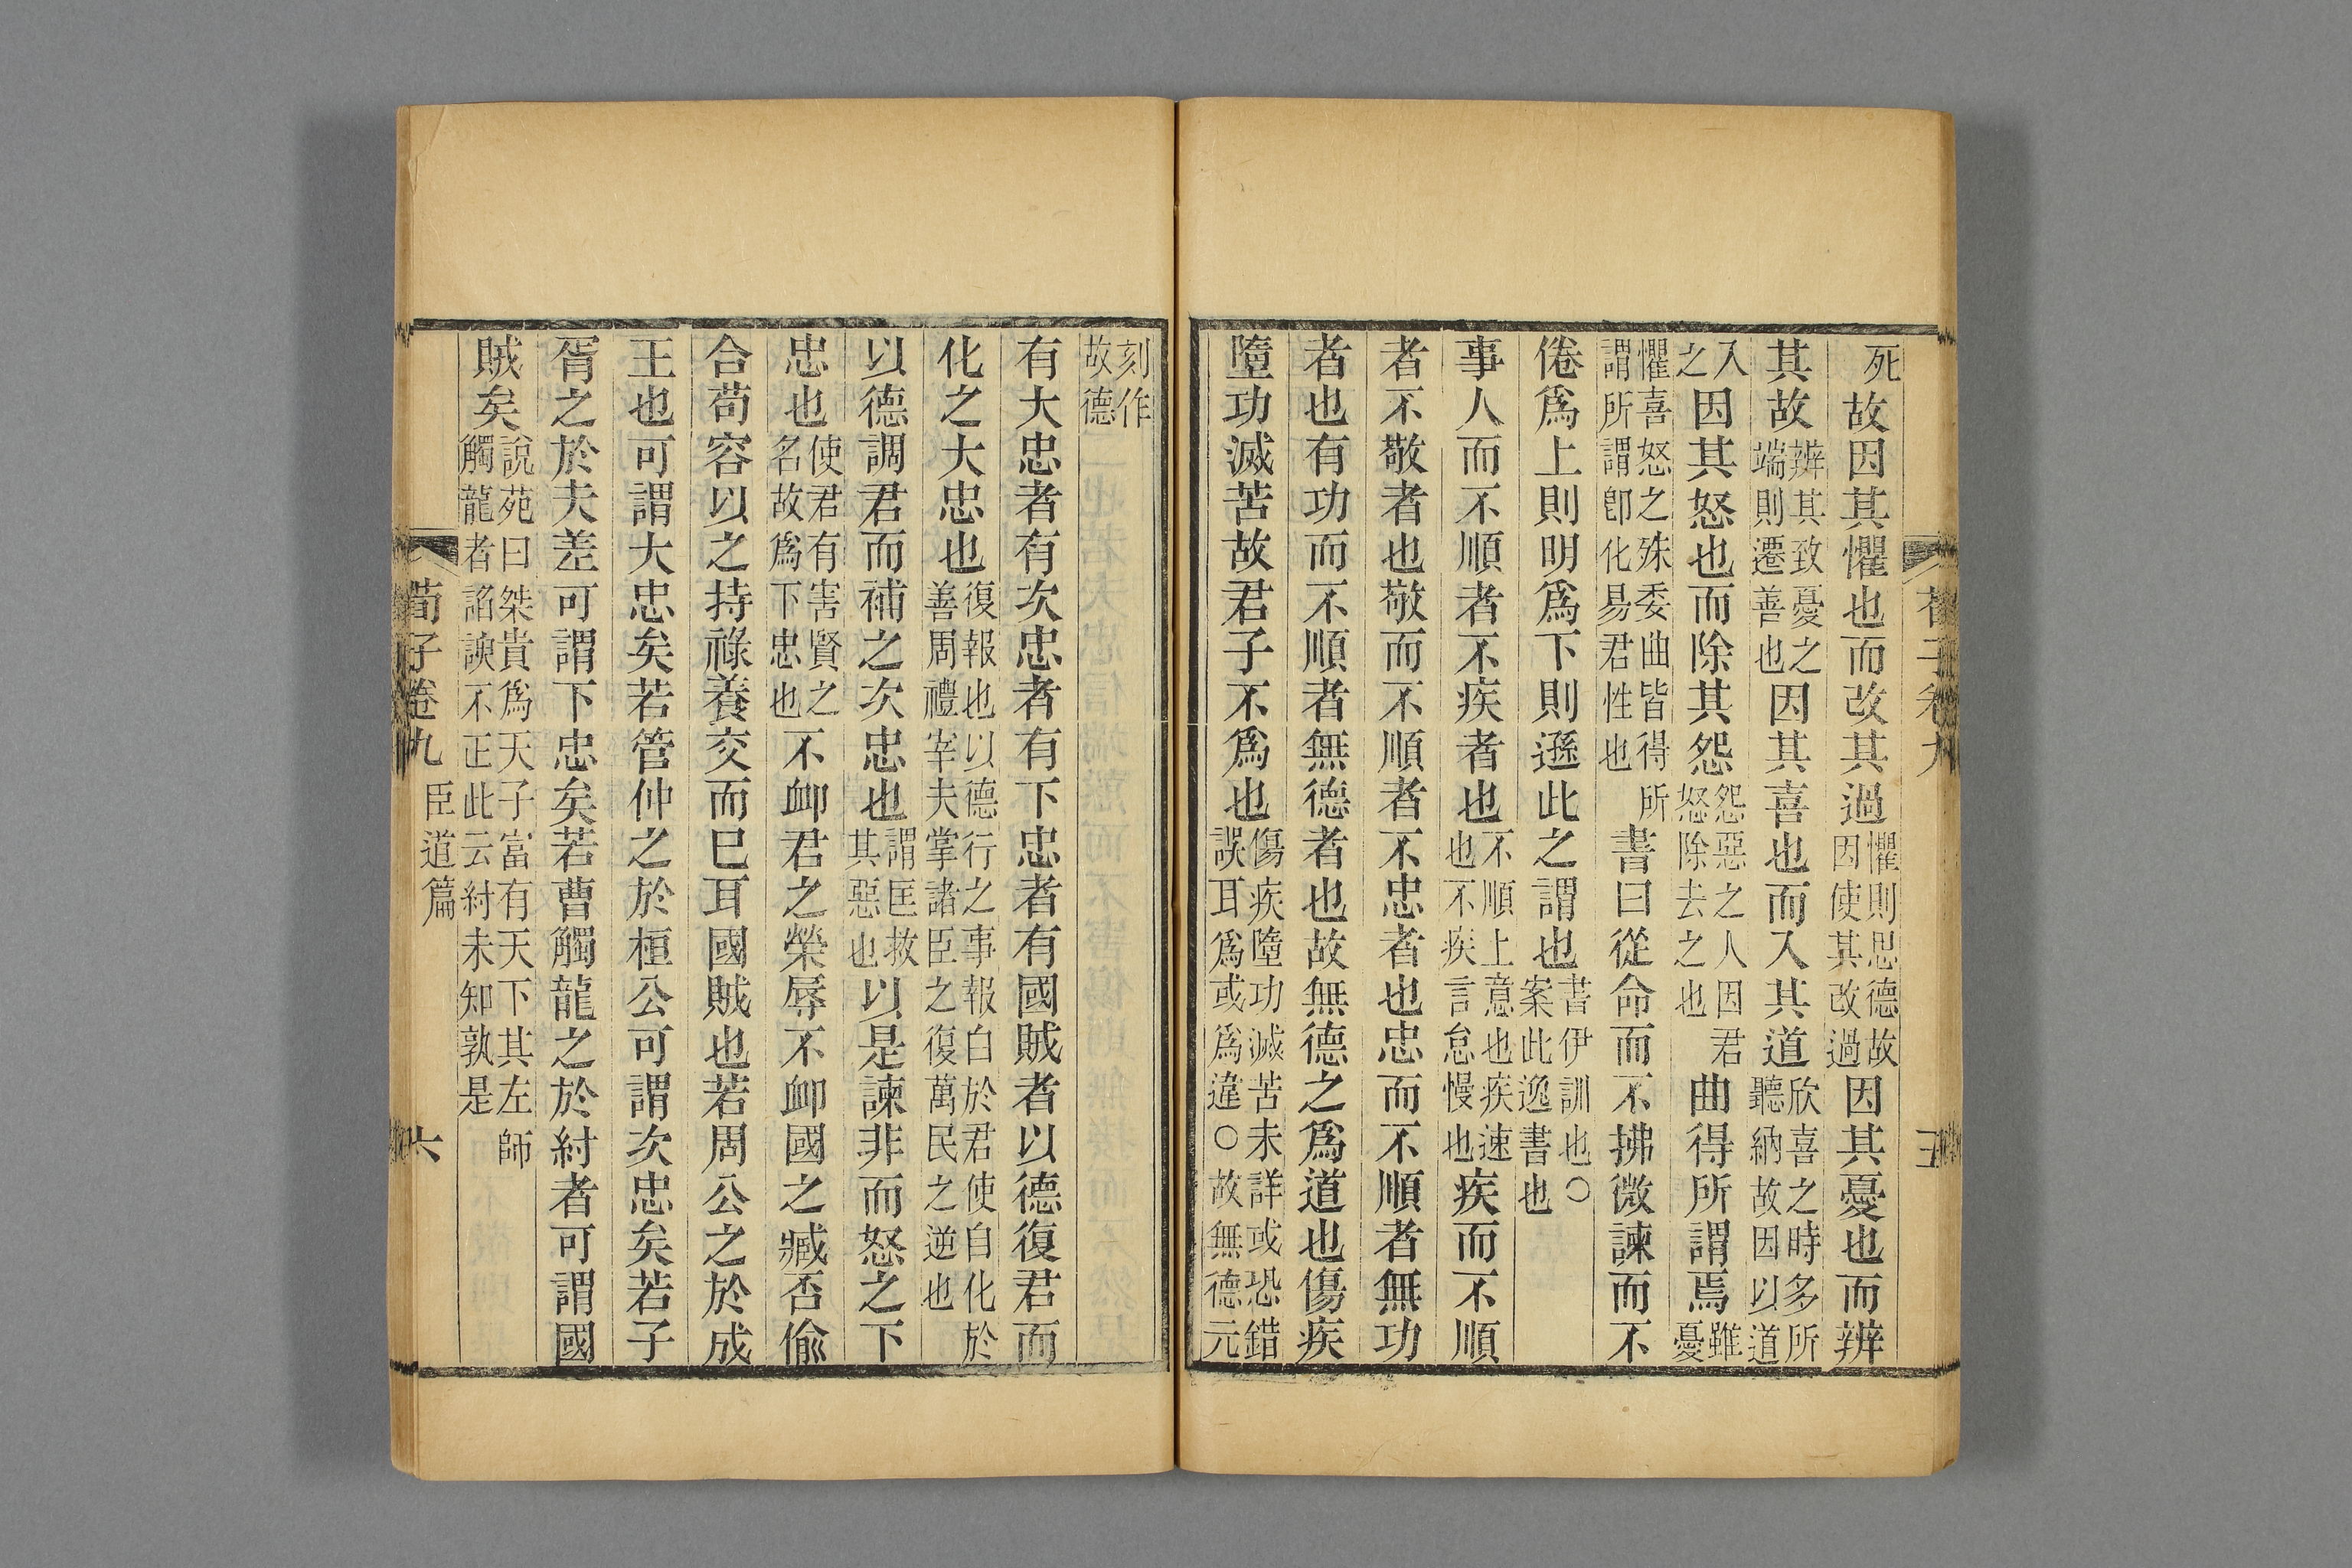 死故因其懼也而改其過懼則思德故因使其改過因其憂也而辨
其故辨其致憂之端則遷善也因其喜也而入其道欣喜之時多所聽納故因以道
入之因其怒也而除其怨怨惡之人因君怒除去之也曲得所謂焉雖憂
懼喜怒之殊委曲皆得所謂所謂卽化易君性也書曰從命而不拂微諫而不
倦爲上則明爲下則遜此之謂也書伊訓也○案此逸書也
事人而不順者不疾者也不順上意也疾速也不疾言怠慢也疾而不順
者不敬者也敬而不順者不忠者也忠而不順者無功
者也有功而不順者無德者也故無德之爲道也傷疾
墮功滅苦故君子不爲也傷疾墮功滅苦未詳或恐錯誤耳爲或爲違○故無德元
刻作故德
有大忠者有次忠者有下忠者有國賊者以德復君而
化之大忠也復報也以德行之事報白於君使自化於善周禮宰夫掌諸臣之復萬民之逆也
以德調君而補之次忠也謂匡救其惡也以是諫非而怒之下
忠也使君有害賢之名故爲下忠也不卹君之榮辱不卹國之臧否偸
合苟容以之持祿養交而已耳國賊也若周公之於成
王也可謂大忠矣若管仲之於桓公可謂次忠矣若子
胥之於夫差可謂下忠矣若曹觸龍之於紂者可謂國
賊矣說苑曰桀貴爲天子富有天下其左師觸龍者諂諛不正此云紂未知孰是
荀子卷九 臣道篇 六